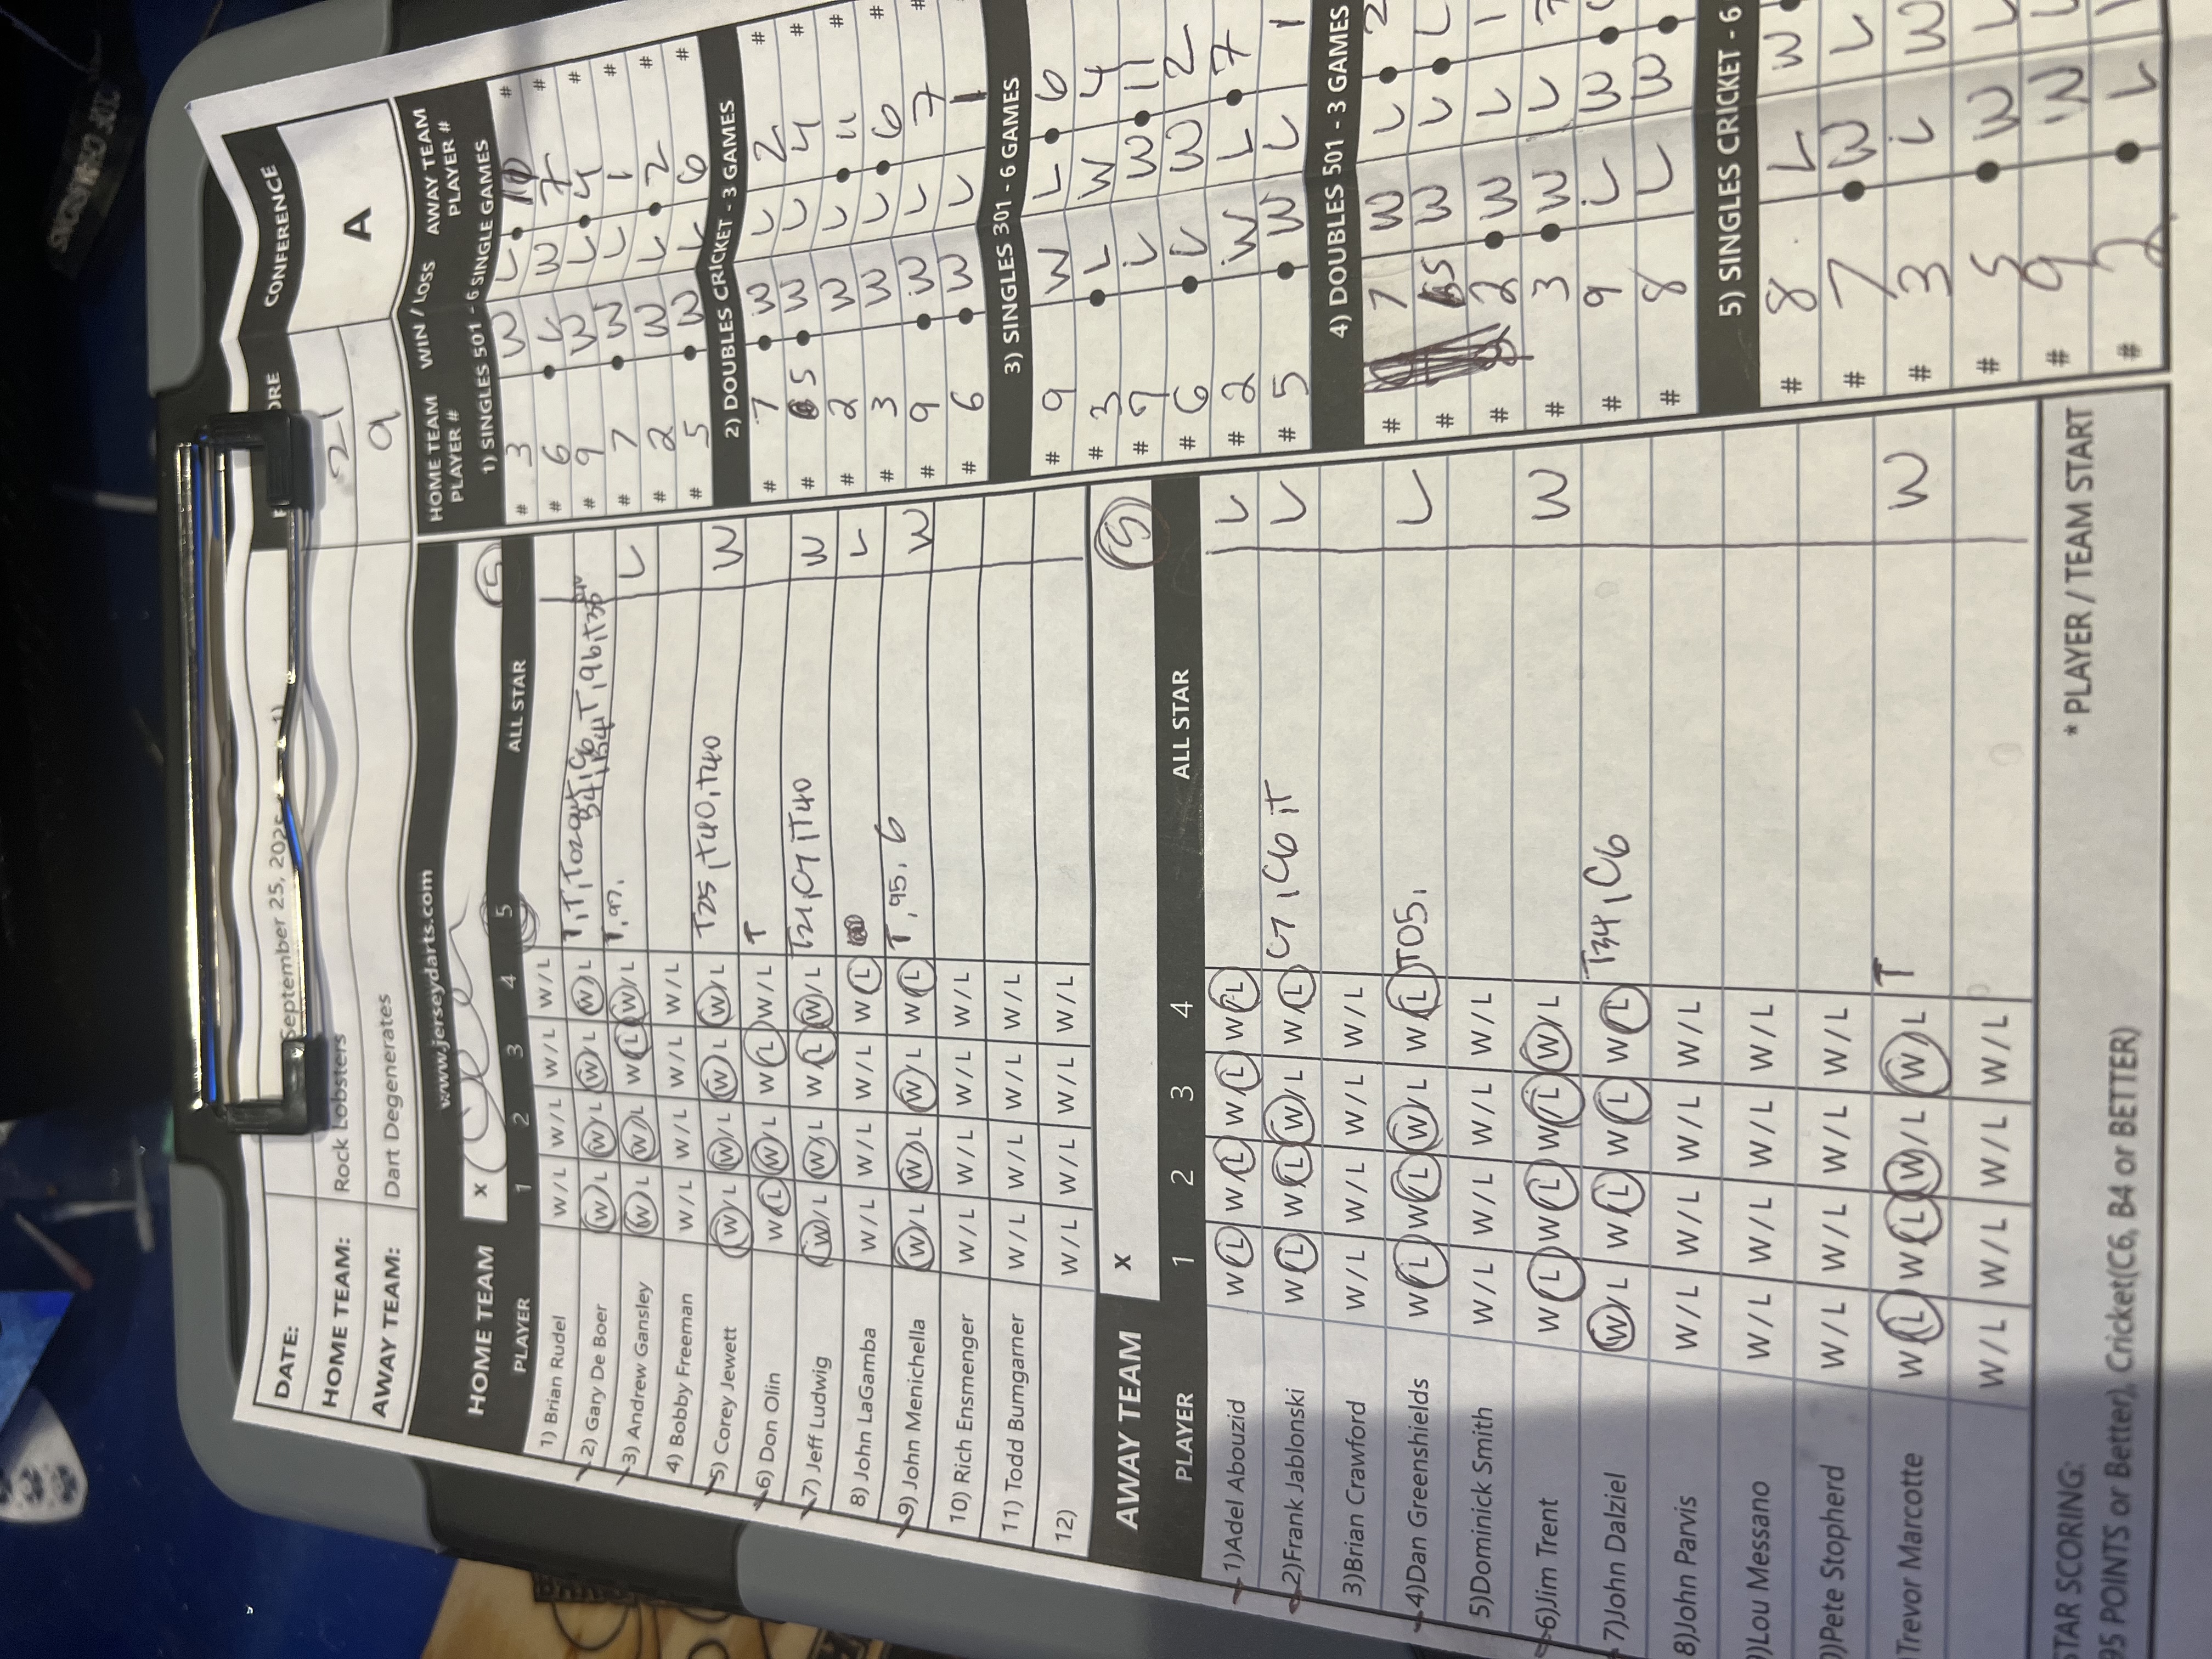 DATE: September 25, 2025
CONFERENCE
HOME TEAM: Rock Lobsters 21
AWAY TEAM: Dart Degenerates 9
A
www.jerseydarts.com
HOME TEAM x
PLAYER 1 2 3 4 5 ALL STAR
1) Brian Rudel W / L W / L W / L W / L
2) Gary De Boer W / L W / L W / L W / L
3) Andrew Gansley W / L W / L W / L W / L T, 97, L
4) Bobby Freeman W / L W / L W / L W / L
5) Corey Jewett W / L W / L W / L W / L T25, T40, T40 W
6) Don Olin W / L W / L W / L W / L T
7) Jeff Ludwig W / L W / L W / L W / L T21, C7, T40 W
8) John LaGamba W / L W / L W / L W / L L
9) John Menichella W / L W / L W / L W / L T, 95, 6 W
10) Rich Ensmenger W / L W / L W / L W / L
11) Todd Bumgarner W / L W / L W / L W / L
12) W / L W / L W / L W / L
AWAY TEAM x 5
PLAYER 1 2 3 4 ALL STAR
1)Adel Abouzid W / L W / L W / L W / L L
2)Frank Jablonski W / L W / L W / L W / L C7, C6, T L
3)Brian Crawford W / L W / L W / L W / L
4)Dan Greenshields W / L W / L W / L W / L T05, L
5)Dominick Smith W / L W / L W / L W / L
6)Jim Trent W / L W / L W / L W / L W
7)John Dalziel W / L W / L W / L W / L T34, C6
8)John Parvis W / L W / L W / L W / L
)Lou Messano W / L W / L W / L W / L
)Pete Stopherd W / L W / L W / L W / L
Trevor Marcotte W / L W / L W / L W / L T W
W / L W / L W / L W / L
STAR SCORING: * PLAYER / TEAM START
95 POINTS or Better), Cricket(C6, B4 or BETTER)
HOME TEAM PLAYER # WIN / LOSS AWAY TEAM PLAYER #
1) SINGLES 501 - 6 SINGLE GAMES
# 3 W L 10 #
# 6 L W 7 #
# 9 W L 4 #
# 7 W L 1 #
# 2 W L 2 #
# 5 W L 6 #
2) DOUBLES CRICKET - 3 GAMES
# 7 W L 2 #
# 5 W L 4 #
# 2 W L 11 #
# 3 W L 6 #
# 9 W L 7 #
# 6 W L 1
3) SINGLES 301 - 6 GAMES
# 9 W L 6
# 3 L W 4
# 7 L W 11
# 6 L W 2
# 2 W L 7
# 5 W L 1
4) DOUBLES 501 - 3 GAMES
# 7 W L 2
# 5 W L
# 2 W L 1
# 3 W L
# 9 L W
# 8 L W
5) SINGLES CRICKET - 6
# 8 L W
# 7 W L
# 3 L W
# 5 W L
# 9 W L
# 2 L